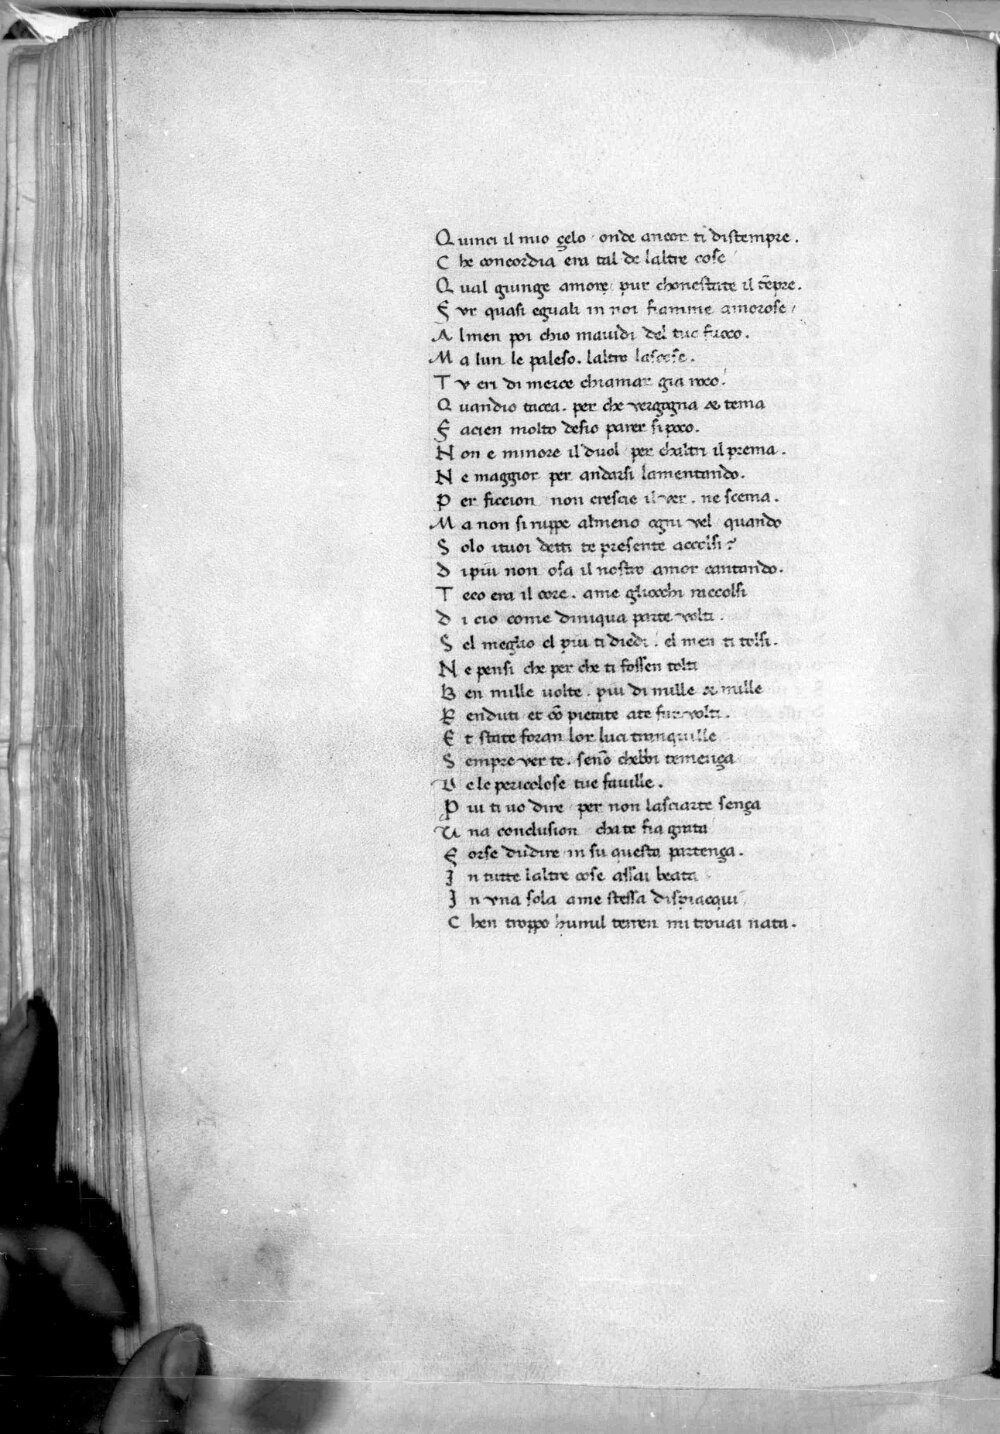 Quinci il mio gelo · onde ancor ti distempre.
Che concordia era tal de laltre cose
Qual giunge amore pur chonestate il tēpre.
Fur quasi eguali in noi fiamme amorose/
Almen poi chio mauidi del tuo fuoco.
Ma lun le paleso. laltro lascose.
Tu eri di merce chiamar gia roco.
Quandio tacea. per che vergogna & tema
Facien molto desio parer si poco.
Non e minore il duol per chaltri il prema.
Ne maggior per andarsi lamentando.
Per ficcion non crescie il ver. ne scema.
Ma non si ruppe almeno ogni vel quando
Solo ituoi detti te presente accolsi?
Dipiu non osa il nostro amor cantando.
Teco era il core. ame gliocchi raccolsi
Di cio come diniqua parte volti.
Sel meglio el piu ti diedi. el men ti tolsi.
Ne pensi che per che ti fossen tolti
Ben mille uolte. piu di mille & mille
Renduti et cō pietate ate fur volti.
Et state foran lor luci tranquille
Sempre ver te. senō chebbi temenga
Ve le pericolose tue fauille.
Piu ti uo dire per non lasciarte senga
Una conclusion chate fia grata
Forse dudire in su questa partenga.
In tutte laltre cose assai beata
In vna sola ame stessa dispiacqui
Chen troppo humil terren mi trouai nata.